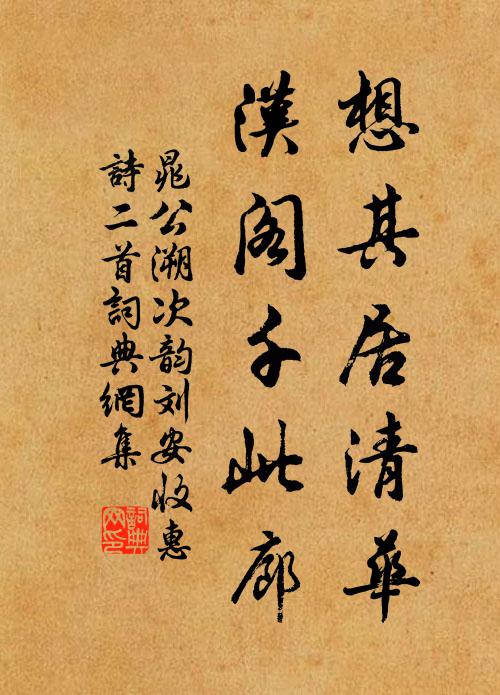 想其居清華
漢阁千此廊
晁公溯次韵刘安收惠
詩二首詞典網集